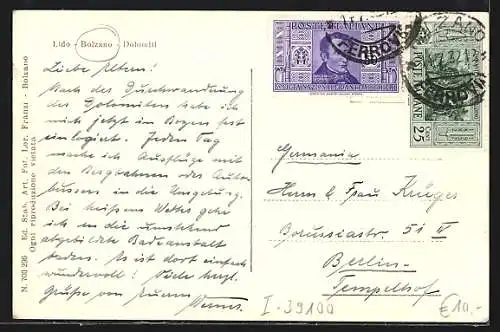 Lido - Bolzano - Dolomiti
Liebe Eltern!
Nach der Durchwanderung
der Dolomiten habe ich
mich jetzt in Bozen fest
einlogiert. Jeden Tag
mache ich Ausflüge mit
den Bergbahnen oder Auto-
bussen in die Umgebung.
Bei heißem Wetter gehe
ich in die umstehend
abgebildete Badeanstalt
baden. Es ist dort einfach
wundervoll! Viele herzl.
Grüße von Eurem
Werner.
N. 703 296 Ed. Stab. Art. Fot. Lor. Fränzl - Bolzano
Ogni riproduzione vietata
POSTE ITALIANE
25
FERROVIA
Germania
Herrn & Frau Krüger
Borussiastr. 51 II
Berlin-
Tempelhof
I-39100
€10,-